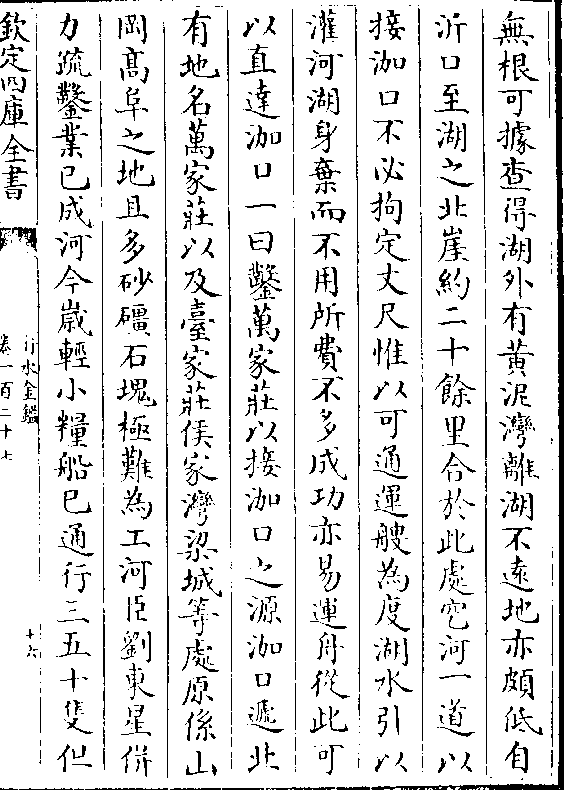 無根可據查得湖外有黃泥灣離湖不遠地亦頗低自
沂口至湖之北崖約二十餘里合於此處穵河一道以
接泇口不必拘定丈尺惟以可通運艘為度湖水引以
灌河湖身棄而不用所費不多成功亦易運舟從此可
以直達泇口一曰鑿萬家莊以接泇口之源泇口遞北
有地名萬家莊以及臺家莊侯家灣梁城等處原係山
岡髙阜之地且多砂礓石塊極難為工河臣劉東星併
力疏鑿業已成河今歳輕小糧船已通行三五十隻但
欽定四庫全書
行水金鑑
卷一百二十七
十六